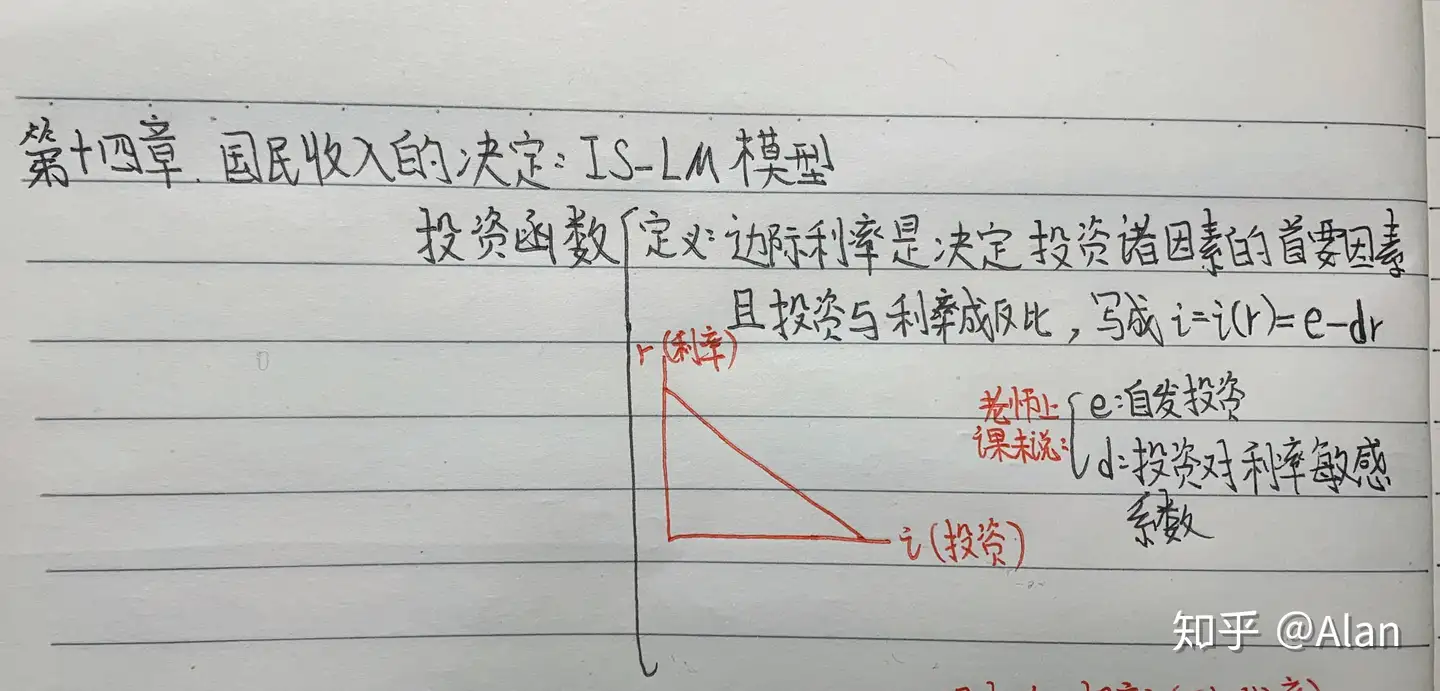 第十四章.国民收入的决定:IS-LM模型
投资函数 定义:边际利率是决定投资诸因素的首要因素
且投资与利率成反比,写成i=i(r)=e-dr
r(利率)
老师上课未说:
e:自发投资
d:投资对利率敏感
系数
i(投资)
知乎 @Alan